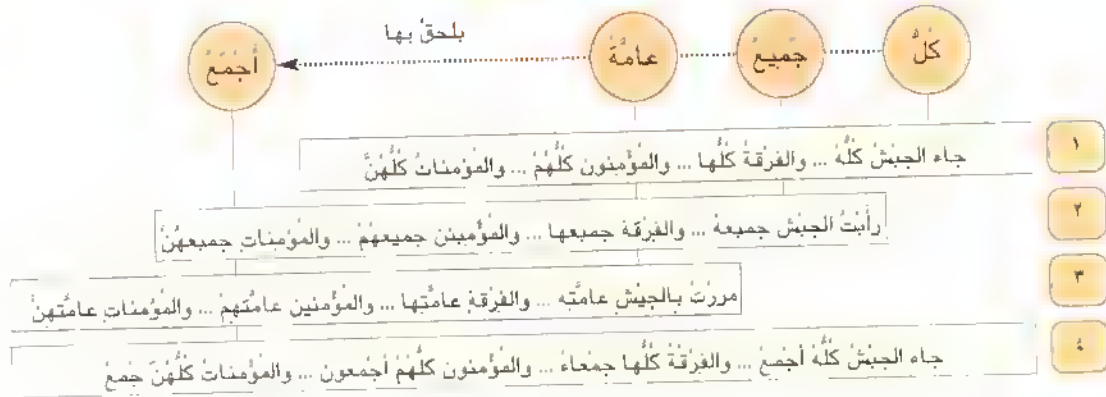 كُلُّ جَميعُ عامَّةُ يلحقُ بها أَجْمَعُ
١ جاء الجيْشُ كُلُّهُ ... والفرْقةُ كُلُّها ... والمُؤْمنون كُلُّهُمْ ... والمُؤمناتُ كُلُّهُنَّ
٢ رأيْتُ الجيْش جميعهُ ... والفرْقة جميعها ... والمُؤْمنين جميعهُمْ ... والمُؤمنات جميعهُنَّ
٣ مررْتُ بالجيْش عامَّته ... والفرْقة عامَّتها ... والمُؤْمنين عامَّتهمْ ... والمُؤمنات عامَّتهنَّ
٤ جاء الجيْشُ كُلُّهُ أجْمعُ ... والفرْقةُ كُلُّها جمْعاءُ ... والمُؤْمنون كُلُّهُمْ أجْمعون ... والمُؤْمناتُ كُلُّهُنَّ جُمعُ